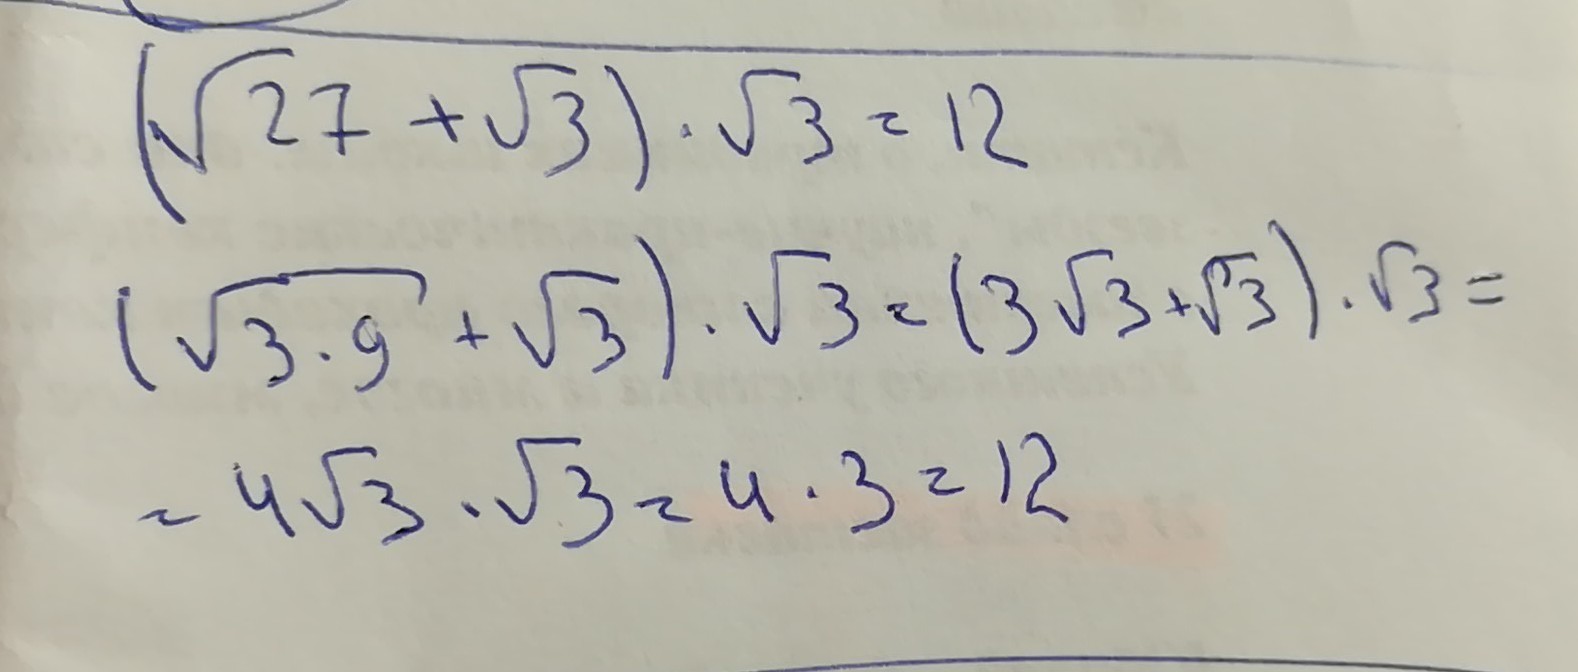 (√27 + √3) · √3 = 12
(√3·9 + √3) · √3 = (3√3 + √3) · √3 =
= 4√3 · √3 = 4 · 3 = 12